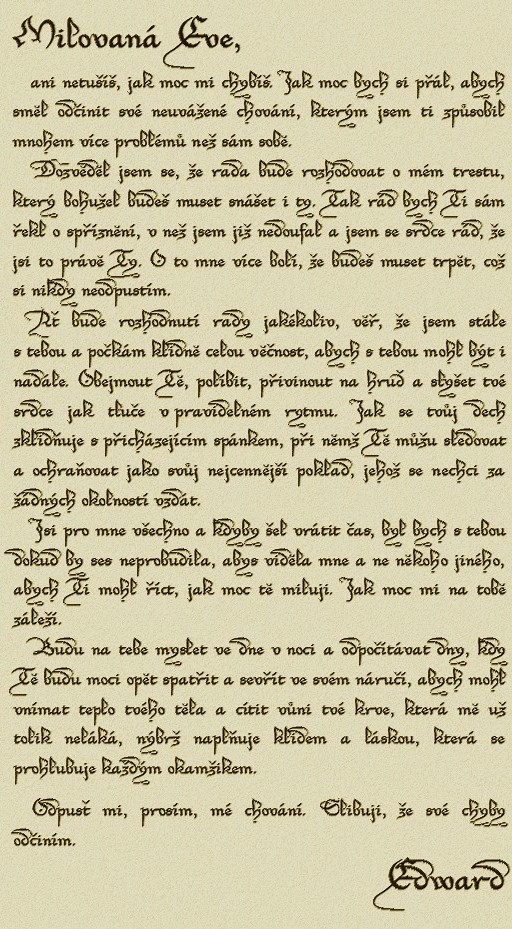 Milovaná Eve,
ani netušíš, jak moc mi chybíš. Jak moc bych si přál, abych
směl odčinit své neuvážené chování, kterým jsem ti způsobil
mnohem více problémů než sám sobě.
Dozvěděl jsem se, že rada bude rozhodovat o mém trestu,
který bohužel budeš muset snášet i ty. Tak rád bych Ti sám
řekl o spříznění, v než jsem již nedoufal a jsem se srdce rád, že
jsi to právě Ty. O to mne více bolí, že budeš muset trpět, což
si nikdy neodpustím.
Ať bude rozhodnutí rady jakékoliv, věř, že jsem stále
s tebou a počkám klidně celou věčnost, abych s tebou mohl být i
nadále. Obejmout Tě, políbit, přivinout na hruď a slyšet tvé
srdce jak tluče v pravidelném rytmu. Jak se tvůj dech
zklidňuje s přicházejícím spánkem, při němž Tě můžu sledovat
a ochraňovat jako svůj nejcennější poklad, jehož se nechci za
žádných okolností vzdát.
Jsi pro mne všechno a kdyby šel vrátit čas, byl bych s tebou
dokud by ses neprobudila, abys viděla mne a ne někoho jiného,
abych Ti mohl říct, jak moc tě miluji. Jak moc mi na tobě
záleží.
Budu na tebe myslet ve dne v noci a odpočítávat dny, kdy
Tě budu moci opět spatřit a sevřít ve svém náručí, abych mohl
vnímat teplo tvého těla a cítit vůni tvé krve, která mě už
tolik neláká, nýbrž naplňuje klidem a láskou, která se
prohlubuje každým okamžikem.
Odpusť mi, prosím, mé chování. Slibuji, že své chyby
odčiním.
Edward